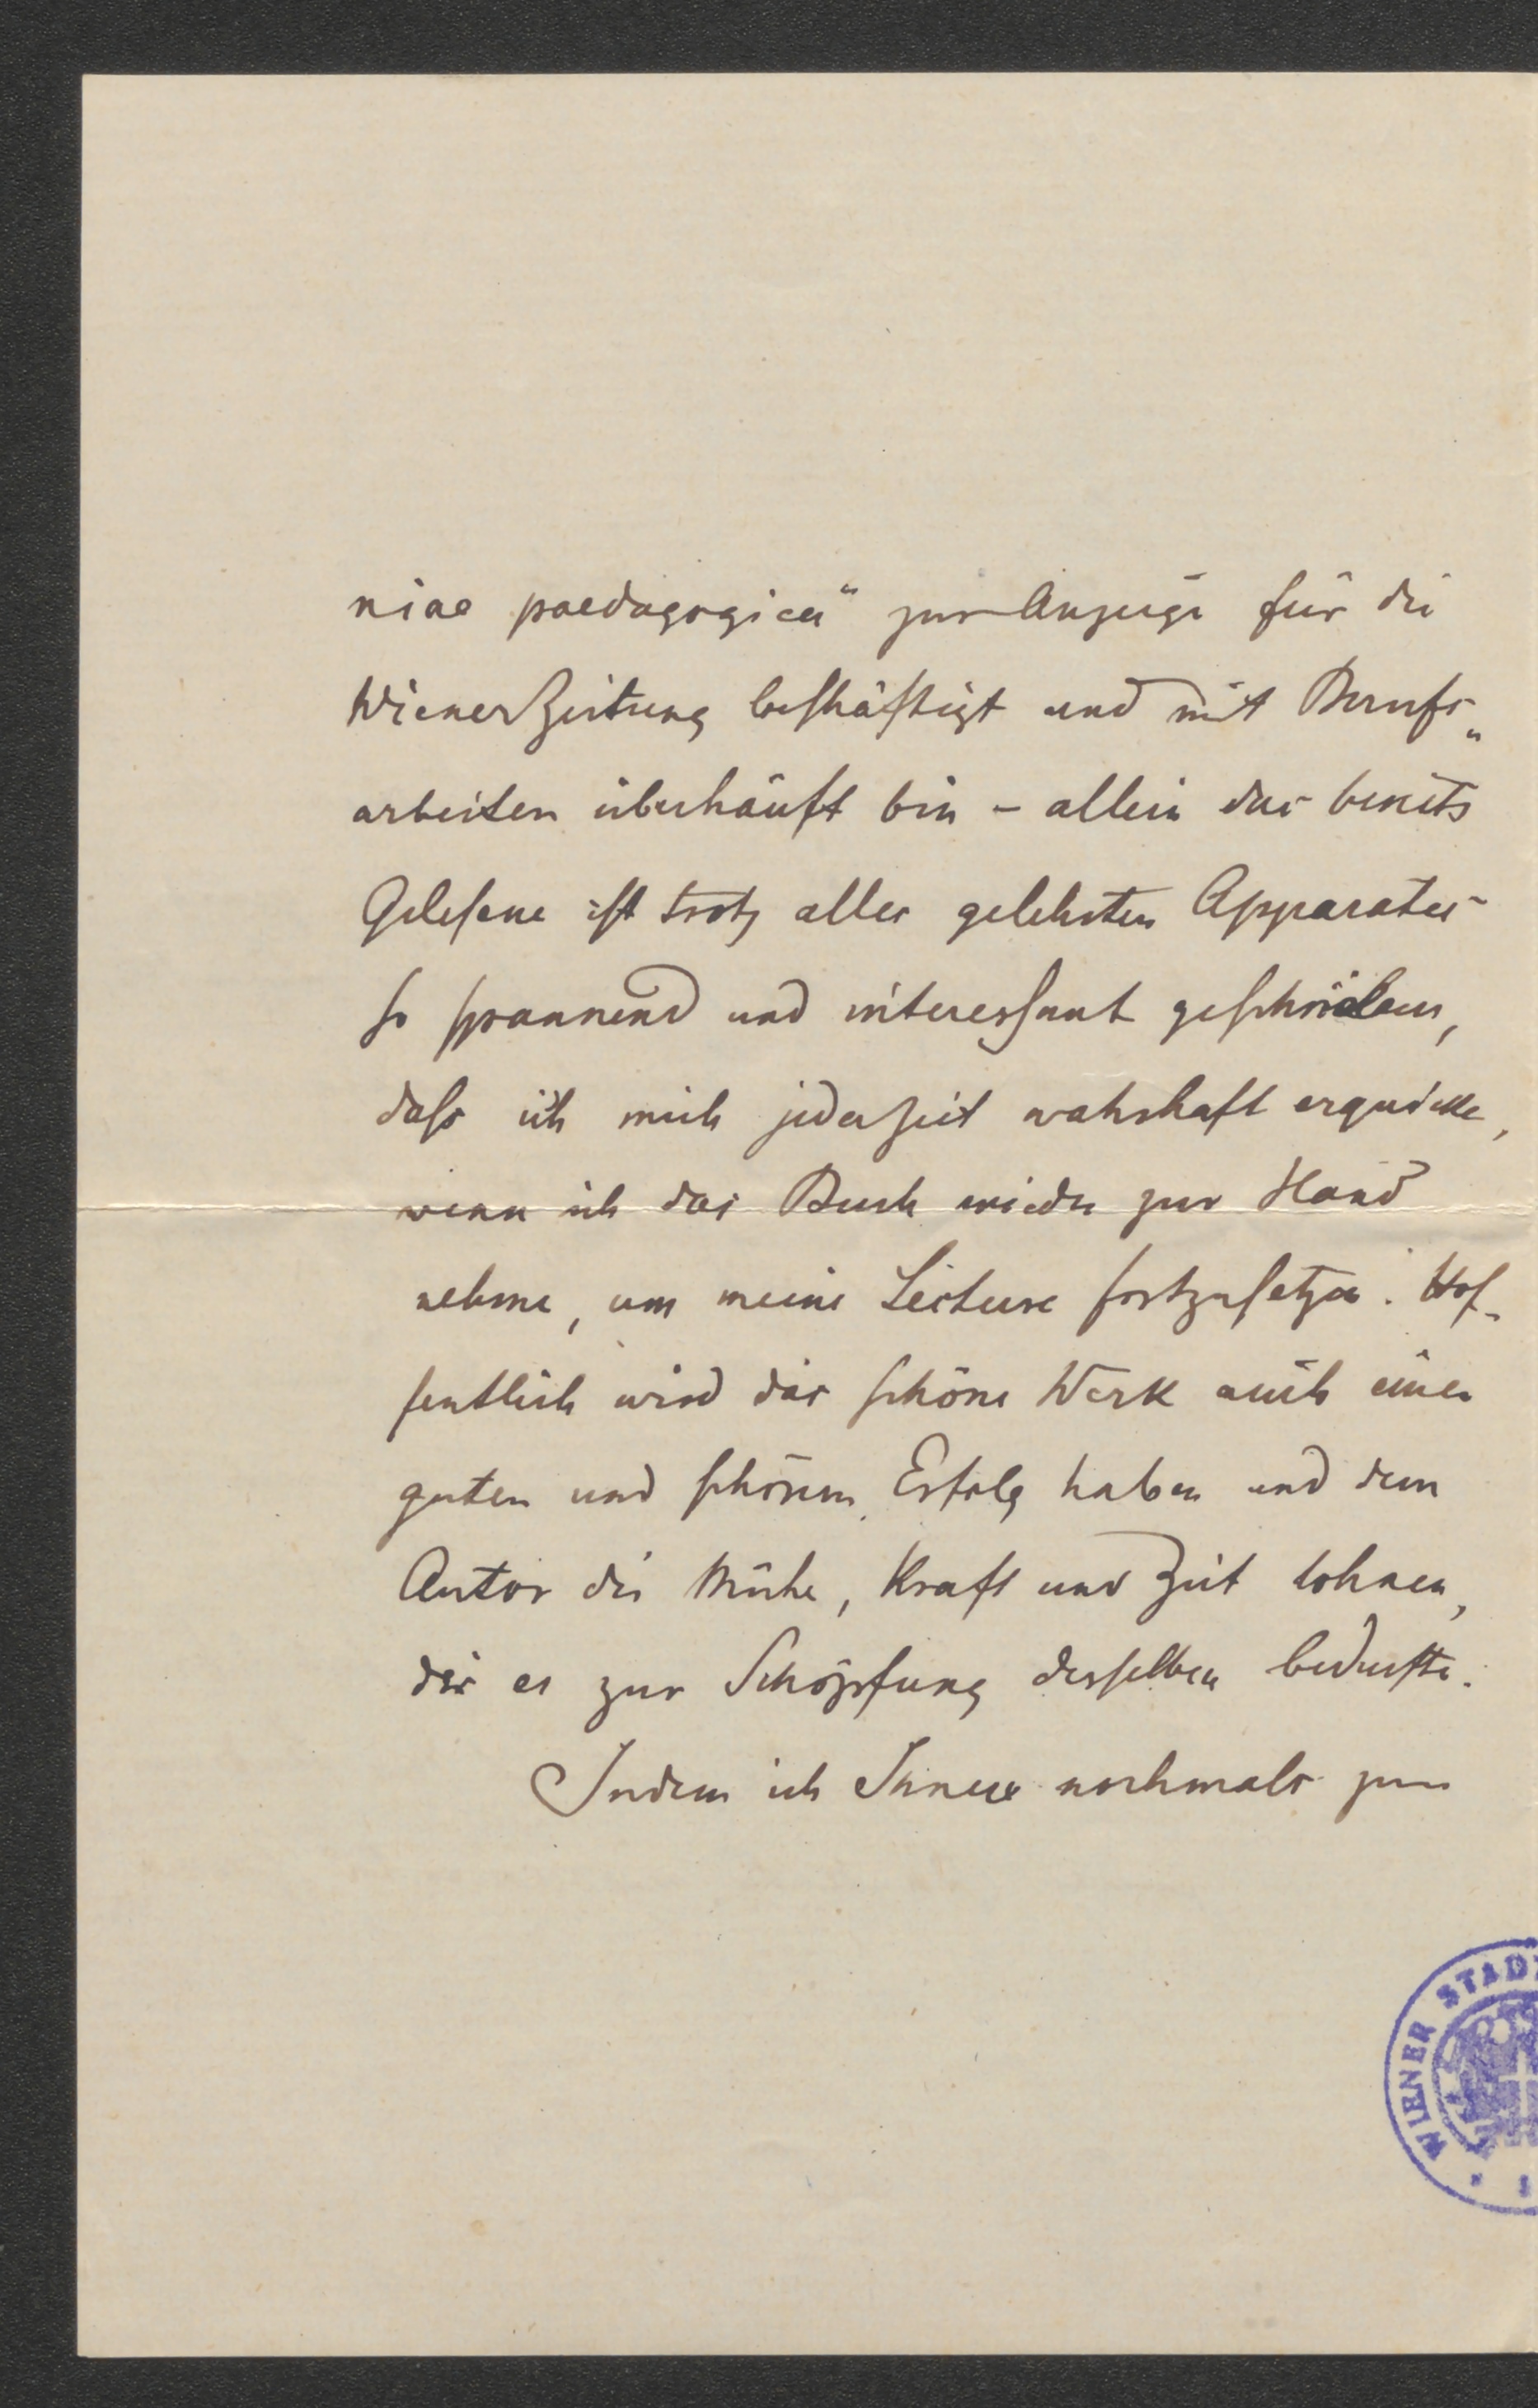 niae paedagogica" zur Anzeige für die
Wiener Zeitung beschäftigt und mit Berufs„
arbeiten überhäuft bin – allein das bereits
Gelesene ist trotz alles gelehrten Apparates
so spannend und interessant geschrieben,
dass ich mich jederzeit wahrhaft erquicke,
wenn ich das Buch wieder zur Hand
nehme, um meine Lecture fortzusetzen. Hof-
fentlich wird das schöne Werk auch einen
guten und schönen Erfolg haben und dem
Autor die Mühe, Kraft und Zeit lohnen,
die es zur Schöpfung desselben bedurfte.
Indem ich Ihnen nochmals zum
WIENER STAD